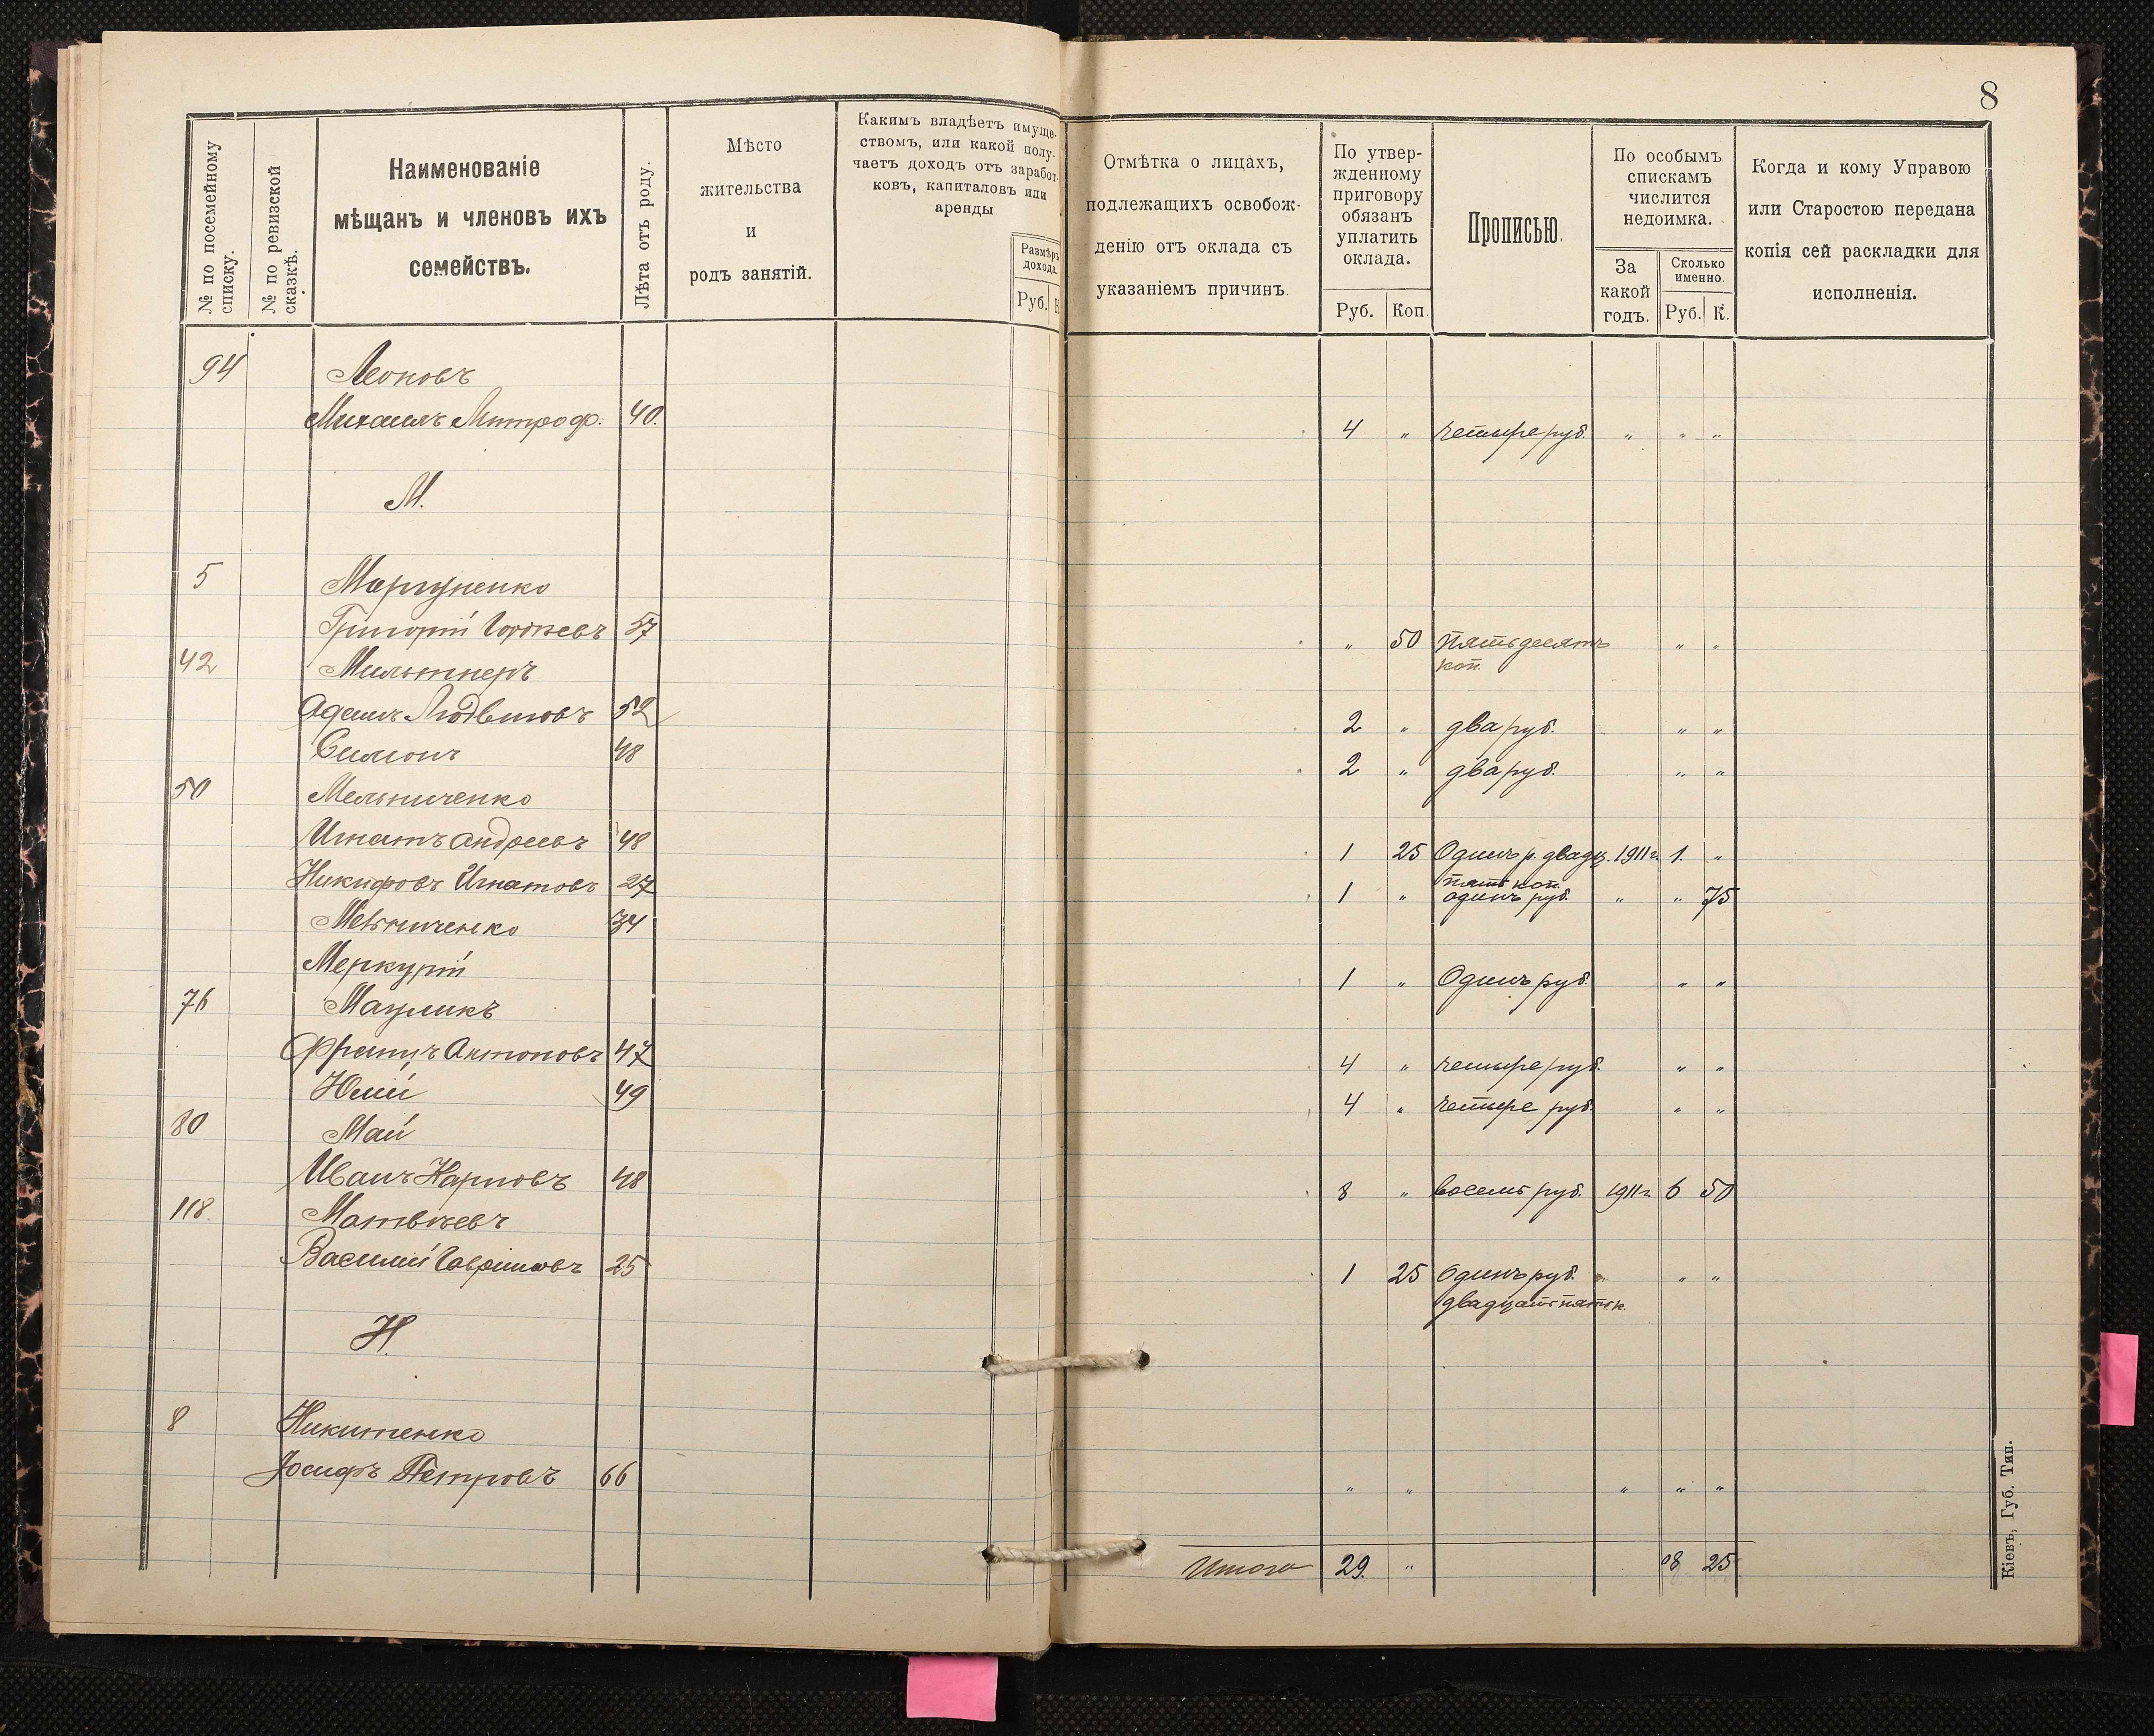 8
№ по посемейному списку.
№ по ревизской сказкѣ.
Наименованіе
мѣщанъ и членовъ ихъ
семействъ.
Лѣта отъ роду.
Мѣсто
жительства
и
родъ занятій.
Какимъ владѣетъ имуще-
ствомъ, или какой полу-
чаетъ доходъ отъ заработ-
ковъ, капиталовъ или
аренды
Размѣръ
дохода.
Руб. К
Отмѣтка о лицахъ,
подлежащихъ освобож-
денію отъ оклада съ
указаніемъ причинъ.
По утвер-
жденному
приговору
обязанъ
уплатить
оклада.
Руб. Коп.
Прописью.
По особымъ
спискамъ
числится
недоимка.
За
какой
годъ.
Сколько
именно.
Руб. К.
Когда и кому Управою
или Старостою передана
копія сей раскладки для
исполненія.
94 Леоновъ
Михаилъ Митроф. 40. 4 „ четыре руб. „ „ „
М.
5 Маргуненко
Григорій 57 „ 50 Пятьдесятъ „ „
коп.
42 Мильтнеръ
Адамъ Людвиговъ 52 2 „ два руб. „ „
Симонъ 48 2 „ два руб. „ „
50 Мельниченко
Игнатъ Андреевъ 48 1 25 Одинъ р. двадц. 1911 г. 1. „
пять коп.
Никифоръ Игнатовъ 27 1 „ одинъ руб. „ „ 75
Мельниченко 34
Меркурій 1 „ Одинъ руб. „ „
76 Мацликъ
Францъ Антоновъ 47 4 „ четыре руб. „ „
Юлій 49 4 „ четыре руб. „ „
80 Май
Иванъ Карповъ 48 8 „ восемь руб. 1911 г. 6 50
118. Матвѣевъ
Василій Гавриловъ 25 1 25 Одинъ руб. „ „
двадцать пять к.
Н.
8 Никитенко
Іосифъ Петровъ 66 „ „ „ „ „
Итого 29. „ 8 25
Кіевъ, Губ. Тип.